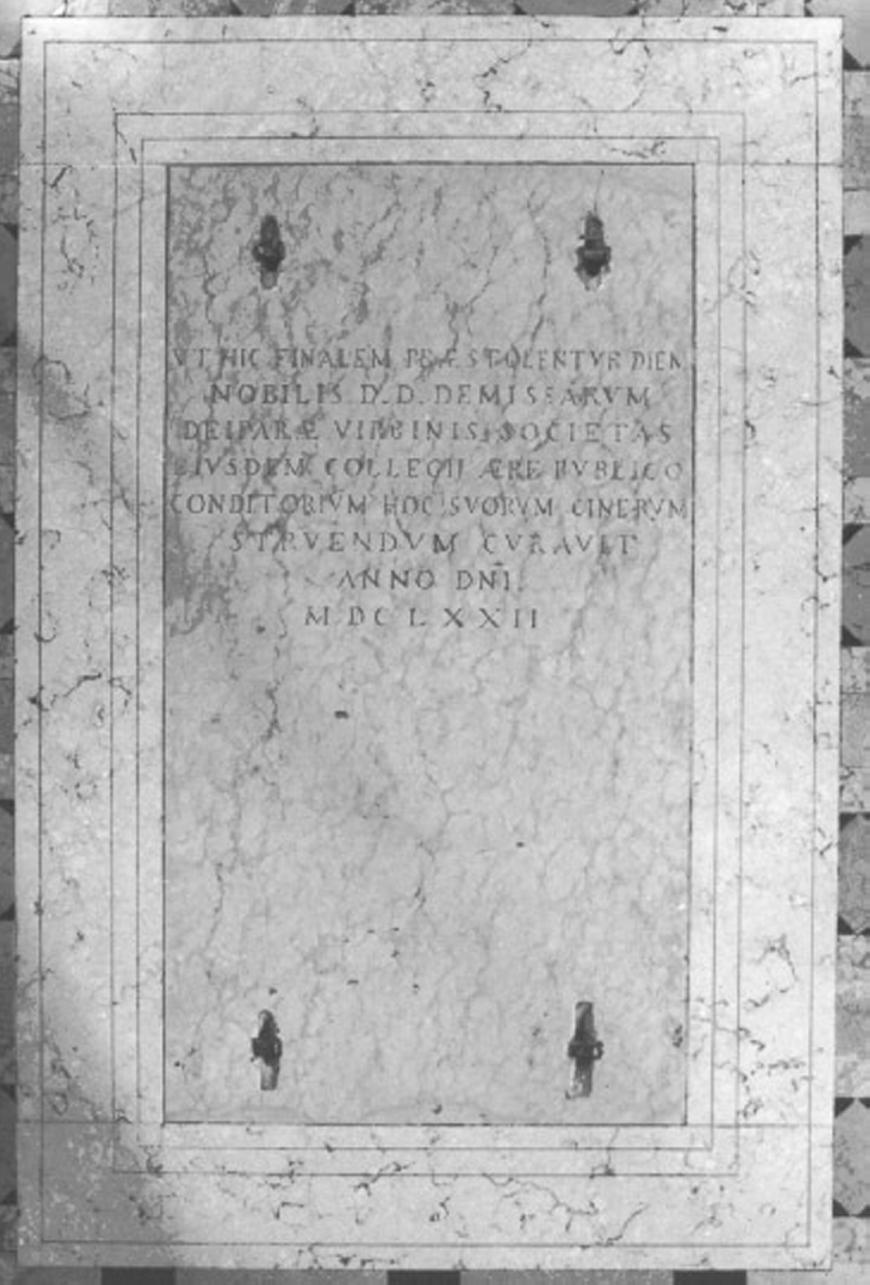 VT HIC FINALEM PRÆSTOLENTVR DIEM
NOBILIS D.D. DEMISSARVM
DEIPARÆ VIRGINIS SOCIETAS
EIVSDEM COLLEGII ÆRE PVBLICO
CONDITORIVM HOC SVORVM CINERVM
STRVENDVM CVRAVIT
ANNO DNĪ.
MDCLXXII